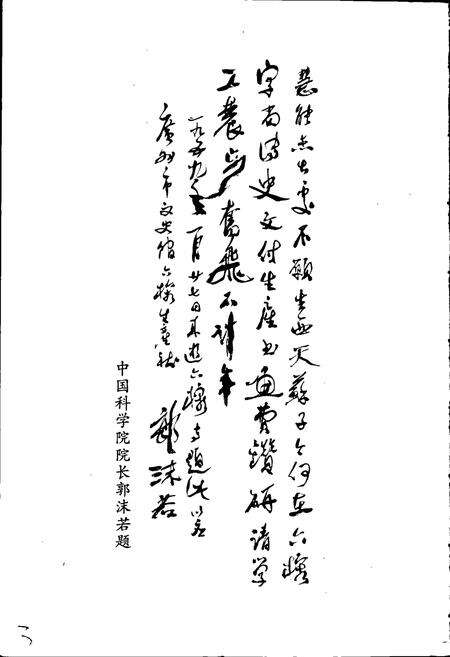 慧能杰出處不願生西天蘇子今何在六榕
字尚傳史文付生產書畫費鑽研請學
工農步奮飛不計年
一九五九年一月廿七日來遊六榕寺題此以應
廣州市文史館六榕生產社
郭沫若
中国科学院院长郭沫若题